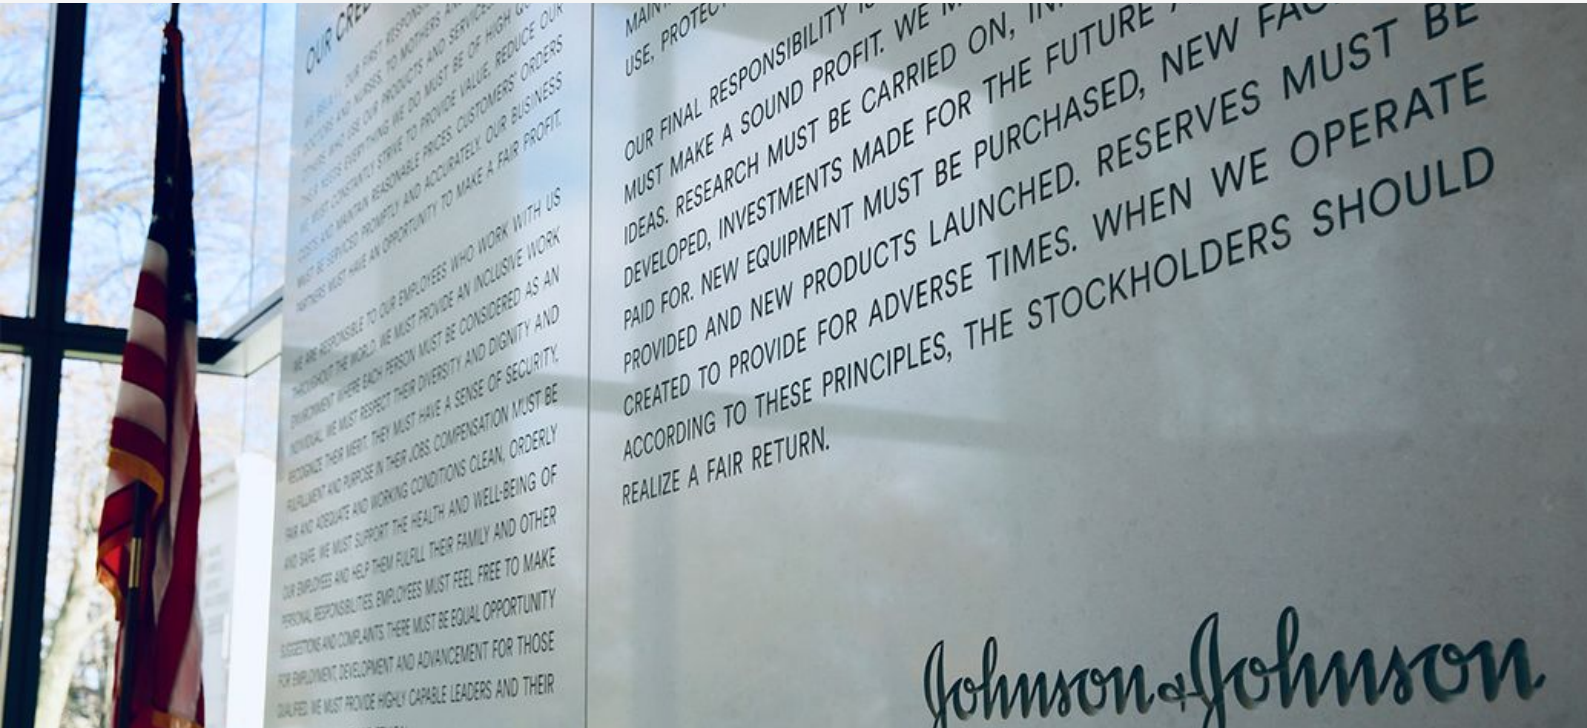 OUR CRED
WE BELIEVE OUR FIRST RESPONSI
DOCTORS AND NURSES, TO MOTHERS AN
OTHERS WHO USE OUR PRODUCTS AND SERVICES
THEIR NEEDS EVERYTHING WE DO MUST BE OF HIGH QU
WE MUST CONSTANTLY STRIVE TO PROVIDE VALUE, REDUCE OUR
COSTS AND MAINTAIN REASONABLE PRICES. CUSTOMERS' ORDERS
MUST BE SERVICED PROMPTLY AND ACCURATELY. OUR BUSINESS
PARTNERS MUST HAVE AN OPPORTUNITY TO MAKE A FAIR PROFIT.
WE ARE RESPONSIBLE TO OUR EMPLOYEES WHO WORK WITH US
THROUGHOUT THE WORLD. WE MUST PROVIDE AN INCLUSIVE WORK
ENVIRONMENT WHERE EACH PERSON MUST BE CONSIDERED AS AN
INDIVIDUAL. WE MUST RESPECT THEIR DIVERSITY AND DIGNITY AND
RECOGNIZE THEIR MERIT. THEY MUST HAVE A SENSE OF SECURITY,
FULFILLMENT AND PURPOSE IN THEIR JOBS. COMPENSATION MUST BE
FAIR AND ADEQUATE AND WORKING CONDITIONS CLEAN, ORDERLY
AND SAFE. WE MUST SUPPORT THE HEALTH AND WELL-BEING OF
OUR EMPLOYEES AND HELP THEM FULFILL THEIR FAMILY AND OTHER
PERSONAL RESPONSIBILITIES. EMPLOYEES MUST FEEL FREE TO MAKE
SUGGESTIONS AND COMPLAINTS. THERE MUST BE EQUAL OPPORTUNITY
FOR EMPLOYMENT, DEVELOPMENT AND ADVANCEMENT FOR THOSE
QUALIFIED. WE MUST PROVIDE HIGHLY CAPABLE LEADERS AND THEIR
MAINT
USE, PROTEC
OUR FINAL RESPONSIBILITY IS
MUST MAKE A SOUND PROFIT. WE M
IDEAS. RESEARCH MUST BE CARRIED ON, IN
DEVELOPED, INVESTMENTS MADE FOR THE FUTURE A
PAID FOR. NEW EQUIPMENT MUST BE PURCHASED, NEW FAC
PROVIDED AND NEW PRODUCTS LAUNCHED. RESERVES MUST BE
CREATED TO PROVIDE FOR ADVERSE TIMES. WHEN WE OPERATE
ACCORDING TO THESE PRINCIPLES, THE STOCKHOLDERS SHOULD
REALIZE A FAIR RETURN.
Johnson & Johnson